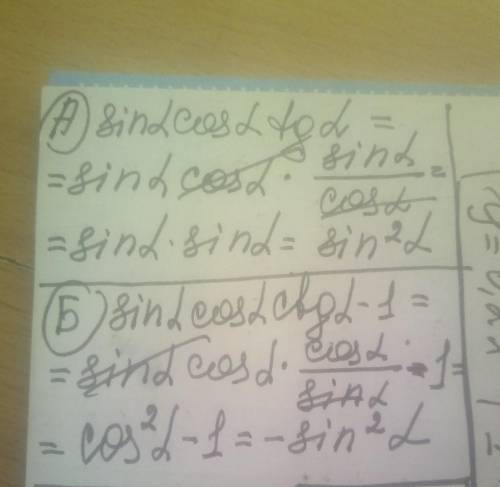 А) sinα cosα tgα =
= sinα cosα · sinα/cosα =
= sinα · sinα = sin²α
Б) sinα cosα ctgα - 1 =
= sinα cosα · cosα/sinα - 1 =
= cos²α - 1 = -sin²α